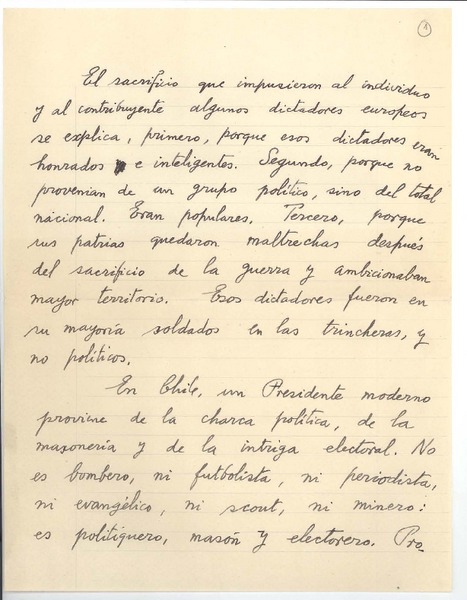 1
El sacrificio que impusieron al individuo
y al contribuyente algunos dictadores europeos
se explica, primero, porque esos dictadores eran
honrados e inteligentes. Segundo, porque no
provenian de un grupo político, sino del total
nacional. Eran populares. Tercero, porque
sus patrias quedaron maltrechas después
del sacrificio de la guerra y ambicionaban
mayor territorio. Esos dictadores fueron en
su mayoría soldados en las trincheras, y
no políticos.
En Chile, un Presidente moderno
proviene de la charca política, de la
masonería y de la intriga electoral. No
es bombero, ni futbolista, ni periodista,
ni evangélico, ni scout, ni minero:
es politiquero, masón y electorero. Pro